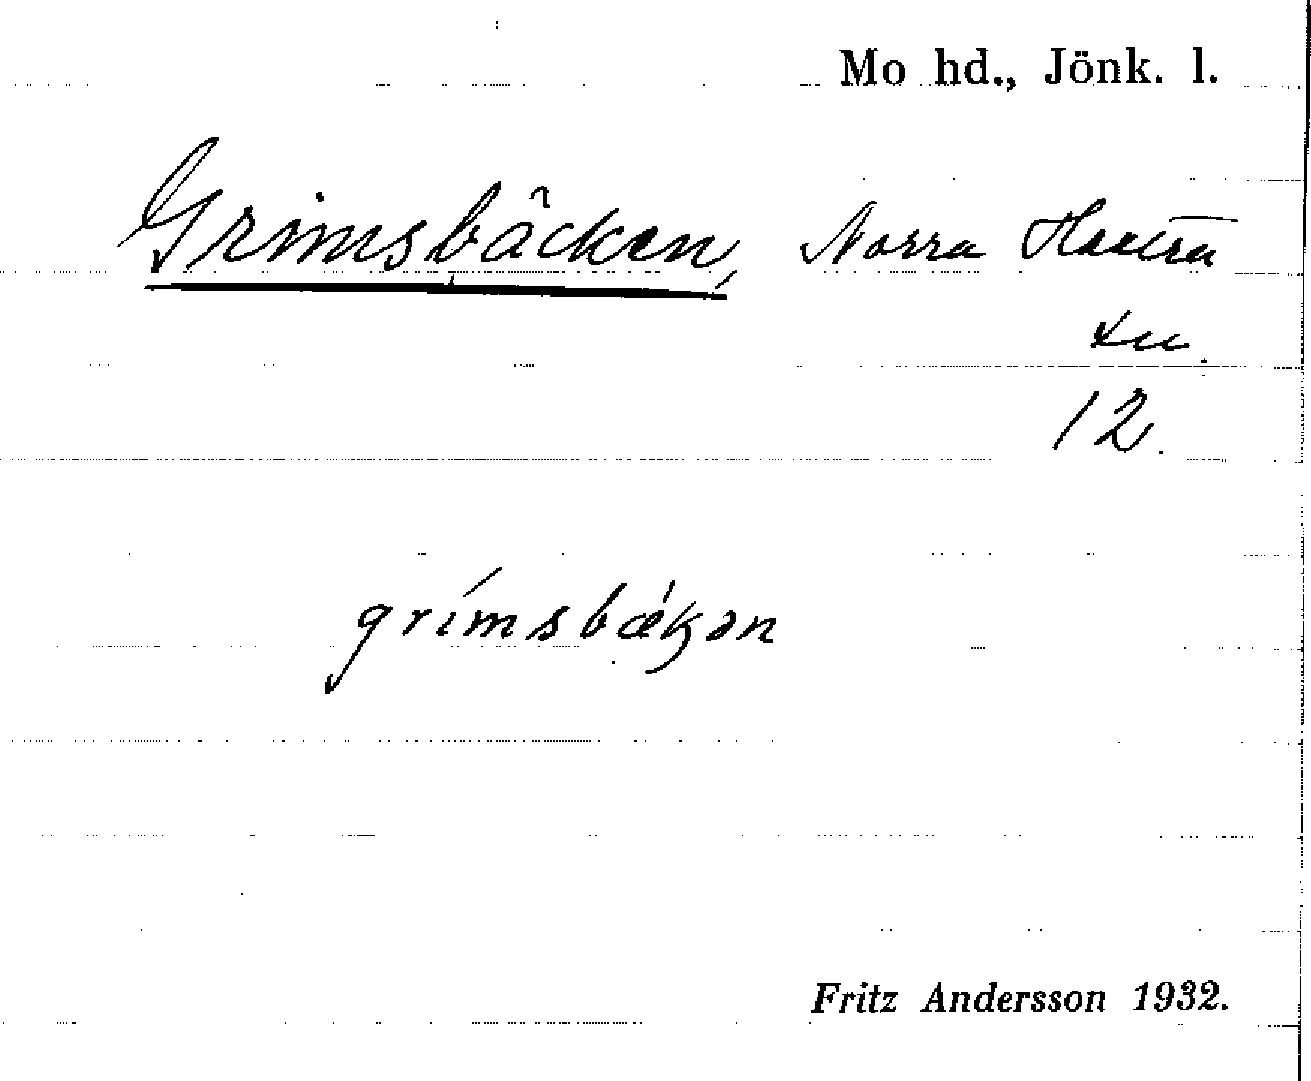 Mo hd., Jönk. l.
Grimsbäcken, Norra Hestra
sn.
12.
grímsbǽkən
Fritz Andersson 1932.